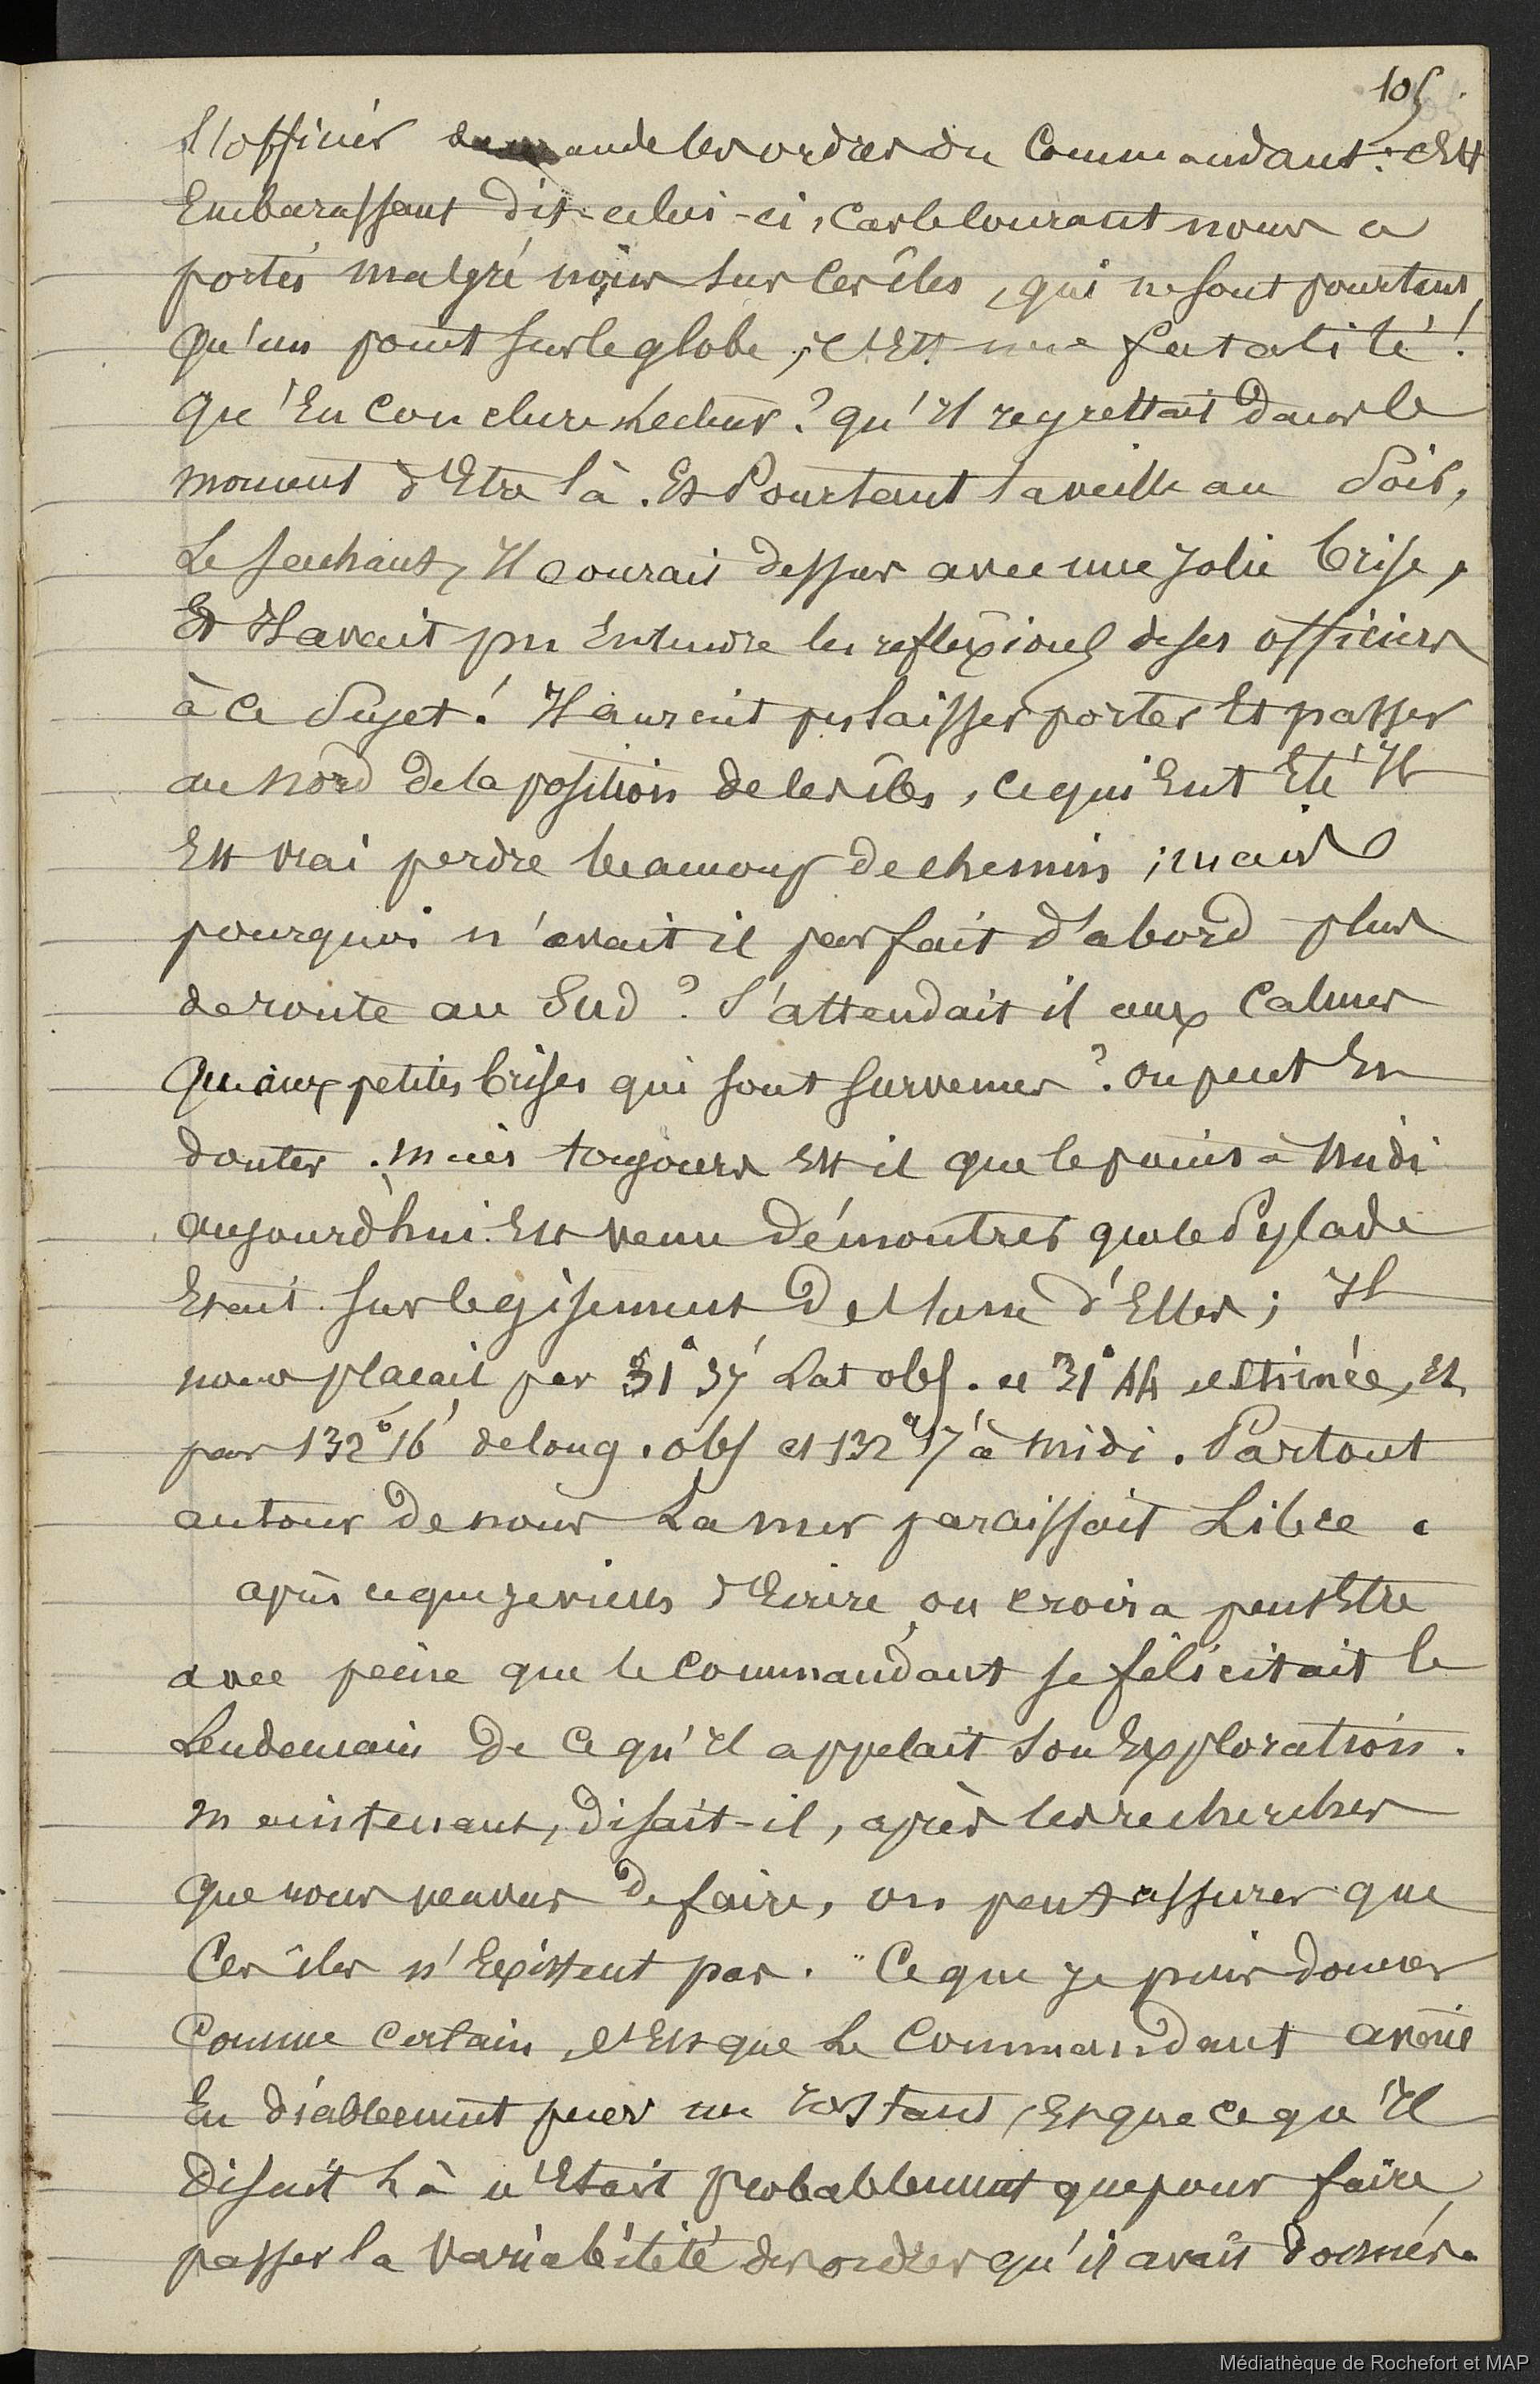 105.
L'officier demande les ordres du Commandant: c'Est
Embarassant dit-celui-ci, Car le Courant nous a
portés malgré nous sur Ces îles, qui ne sont pourtant,
qu'un point sur le globe; c'Est une fatalité!
Qu'En Conclure Lecteur? qu'Il regrettait dans le
moment d'Etre là. Et Pourtant la veille au Soir,
Le sachant, Il Courait dessus avec une Jolie brise,
Et Il avait pu Entendre les reflexions de ses officiers
à Ce Sujet! Il aurait pu laisser porter Et passer
au Nord de la position de Ces îles, Ce qui Eut Eté Il
Est vrai perdre beaucoup de chemin; mais
pourquoi n'avait il pas fait d'abord plus
de route au Sud? S'attendait il aux Calmes
Qu aux petites brises qui sont survenues? on peut En
douter. Mais toujours Est il que le point à Midi
aujourd'hui Est venu démontrer que le Pylade
Etait sur le gisement De l'une d'Elles; Il
nous placait par 31° 37' Lat obs. et 31° 44 estimée, Et
par 132° 16' de long. obs et 132° 17' à Midi. Partout
autour de nous La mer paraissait Libre.
après ce que je viens d'Ecrire, on croira peut Etre
avec peine que le Commandant se félicitait le
Lendemain de Ce qu'Il appelait son Exploration.
Maintenant, disait-il, après les recherches
Que nous venons de faire, on peut assurer que
Ces îles n'Existent pas." Ce que je puis donner
Comme Certain, c'Est que Le Commandant avait
Eu diablement peur un Instant, Et que Ce qu'Il
disait Là n'Etait probablement que pour faire
passer la variabilité des ordres qu'il avait donnés.
Médiathèque de Rochefort et MAP